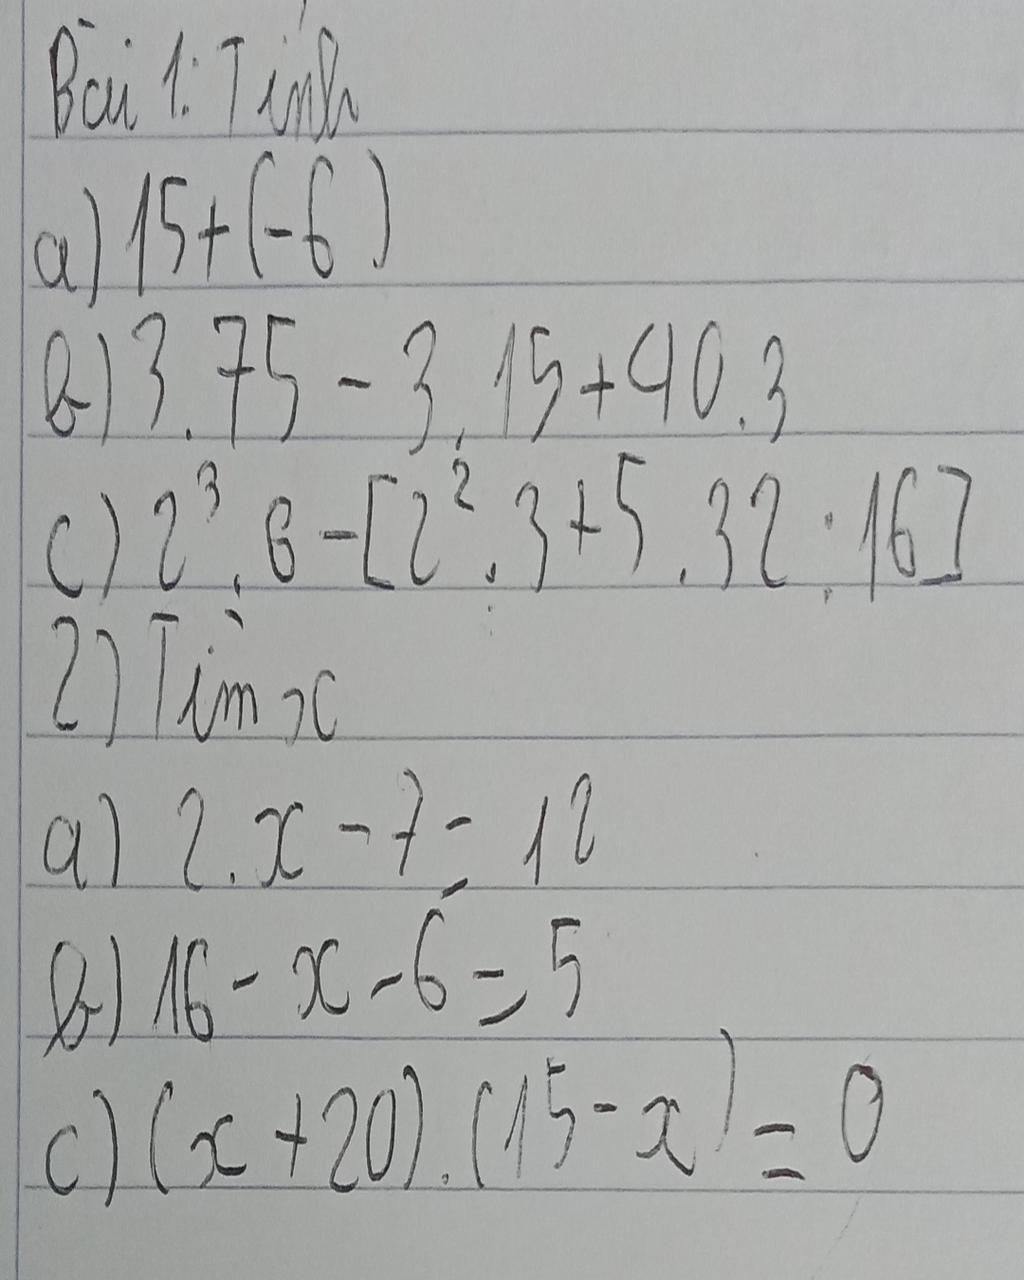 Bài 1: Tính
a) 15 + (-6)
b) 3 . 75 - 3 . 15 + 40 . 3
c) 2³ . 6 - [2² . 3 + 5 . 32 : 16]
2) Tìm x
a) 2 . x - 7 = 12
b) 16 - x - 6 = 5
c) (x + 20) . (15 - x) = 0